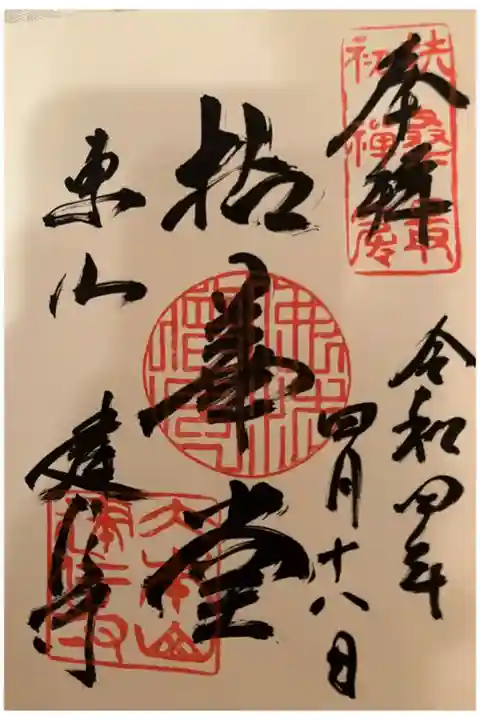 奉拝
扶桑最初禅窟
令和四年
四月十八日
拈華堂
東山
建仁寺
大本山建仁寺